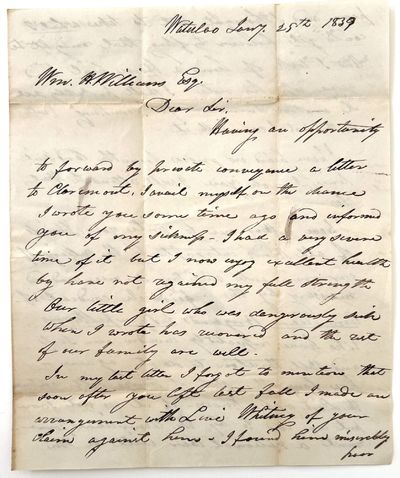 Waterloo Jany. 25th 1839
Wm. H. Williams Esq.
Dear Sir.
Having an opportunity
to forward by private conveyance a letter
to Claremont, I avail myself on the chance
I wrote you some time ago and informed
you of my sickness - I had a very severe
time of it but I now enjoy excellent health
by have not regained my full strength
Our little girl who was dangerously sick
when I wrote has recovered and the rest
of our family are well.
In my last letter I forgot to mention that
soon after you left last fall I made an
arrangement with Levi Whitney of your
claim against him - I found him miserably
poor